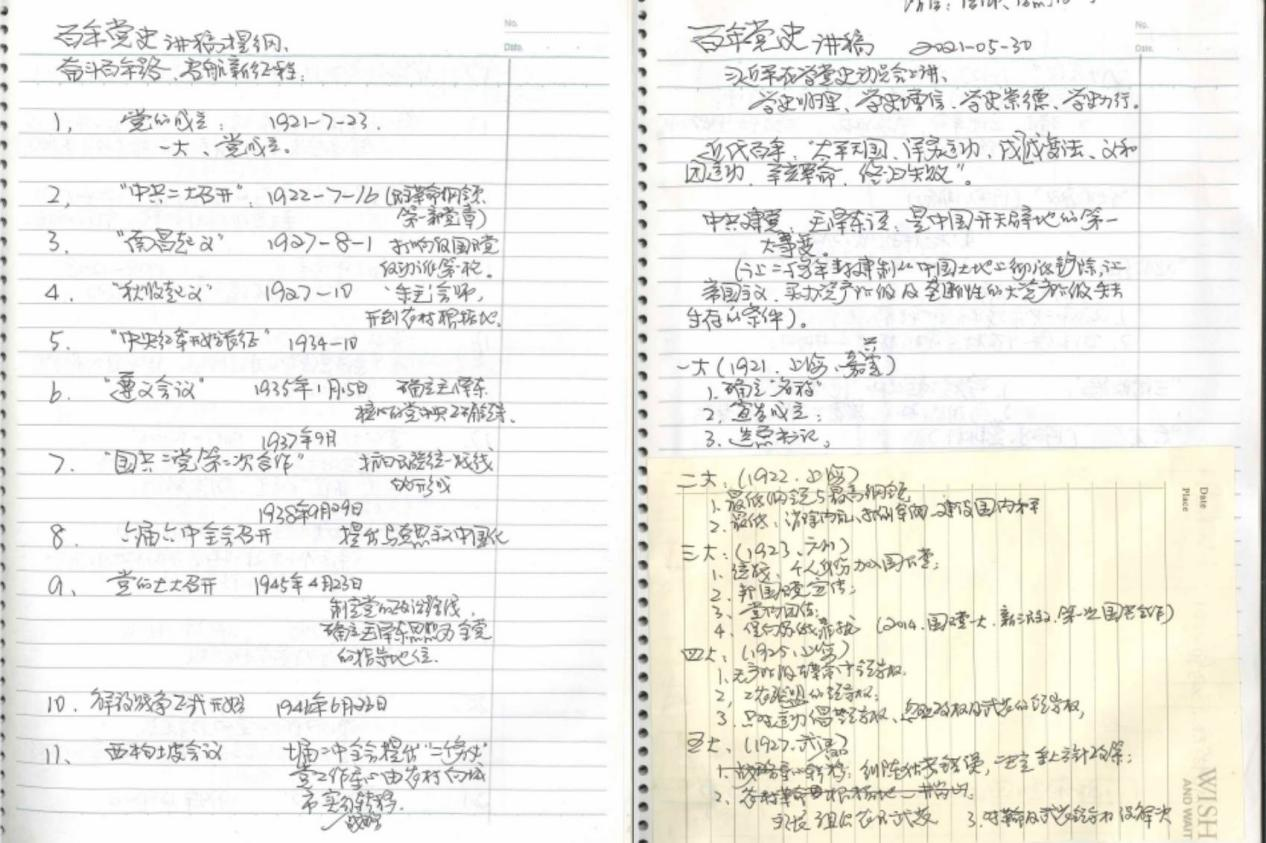 No.
Date.
百年党史讲稿提纲、
奋斗百年路、启航新征程.
1, 党的成立: 1921-7-23.
一大、党成立。
2, "中共二大召开" 1922-7-16 (民革命纲领
第一部党章)
3. "南昌起义" 1927-8-1 打响反国民党
反动派第一枪。
4. "秋收起义" 1927-10 朱毛会师,
开创农村根据地.
5. "中央红军开始长征" 1934-10
6. "遵义会议" 1935年1月15日 确立毛泽东
核心的党中央正确领导.
1937年9月
7. "国共二党第二次合作" 抗日民族统一战线
的形成
1938年9月29日
8. 六届六中全会召开 提出马克思主义中国化
9、 党的七大召开 1945年4月23日
制定党的政治路线.
确立毛泽东思想为全党
的指导地位.
10. 解放战争正式开始 1946年6月26日
11. 西柏坡会议 七届二中全会提出"二个务必"
党工作重心由农村向城
市实行转移.
战略
No.
Date.
百年党史讲稿 2021-05-30
习近平在学党史动员会上讲、
学史明理、学史增信、学史崇德、学史力行。
近代百年, "太平天国、洋务运动、戊戌变法、义和
团运动、辛亥革命、终归失败"。
中共建党, 毛泽东说, 是中国开天辟地的第一
大事变。
(让二千多年封建制从中国土地上彻底铲除, 让
帝国主义、买办资产阶级及垄断性的大资产阶级失去
生存的条件)。
兴
一大 (1921. 上海, 嘉)
1. 确立"名称"
2, 宣告成立;
3. 选票书记。
二大: (1922. 上海)
1. 最低纲领与最高纲领
2. 最低: 消除内乱、打倒军阀、建设国内和平
三大: (1923、广州)
1. 个人身份加入国民党;
2. 国民党宣传;
3. 党的团结;
4. (2014. 国民党一大. 第一次国共合作)
四大: (1925、上海)
1. 无产阶级在革命中领导权.
2, 工农联盟的领导权;
3. 领导权、忽略政权及武装的领导权,
五大、(1927. 武昌)
1. 战略重心转移; 纠陈独秀错误,
2. 农村革命
组织农民武装 3. 对革命及武装领导权没解决
Date
Place
WISH
AND WAIT